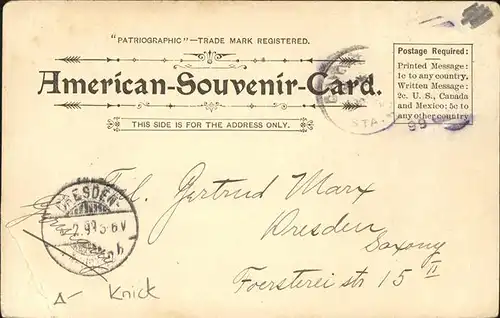 "PATRIOGRAPHIC"—TRADE MARK REGISTERED.
American-Souvenir-Card.
THIS SIDE IS FOR THE ADDRESS ONLY.
Postage Required:
Printed Message:
1c to any country.
Written Message:
2c. U. S., Canada
and Mexico; 5c to
any other country
STA.
99
Frl. Gertrud Marx
Dresden
Saxony
Foersterei str 15 II
DRESDEN-
Knick